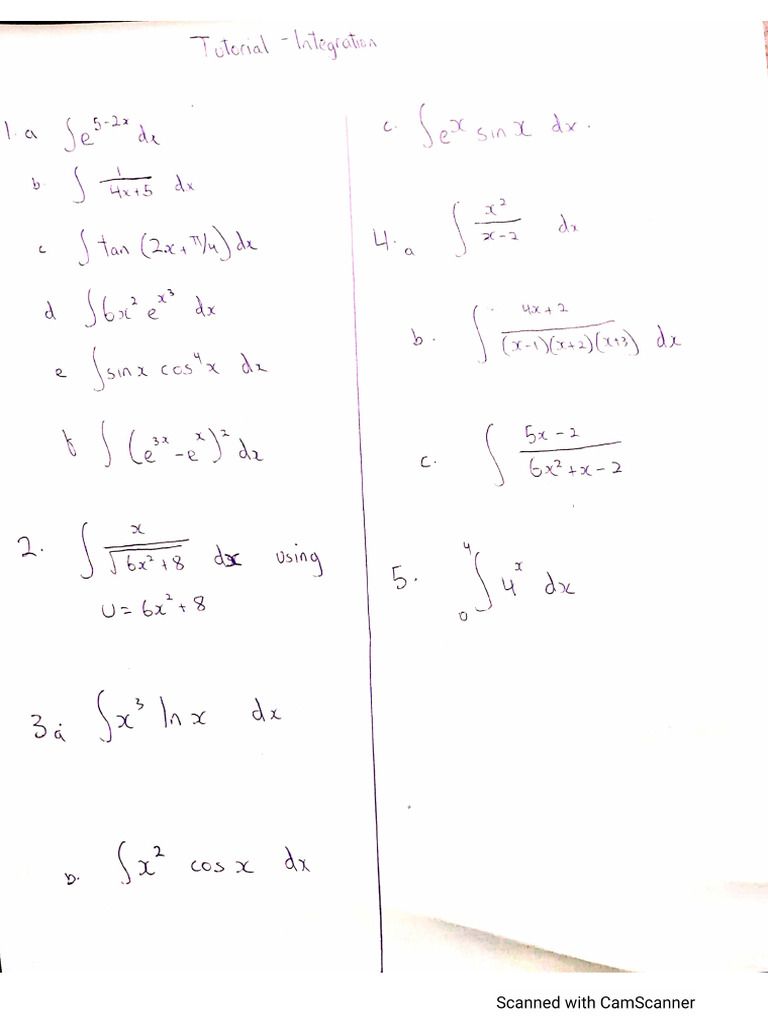 Tutorial - Integration
1. a ∫e^(5-2x) dx
b. ∫ 1/(4x+5) dx
c ∫ tan (2x+π/4) dx
d ∫6x² e^(x³) dx
e ∫sin x cos⁴x dx
f ∫ (e^(3x) - e^x)² dx
2. ∫ x/√(6x²+8) dx using
U = 6x² + 8
3 a. ∫x³ ln x dx
b. ∫x² cos x dx
c. ∫e^x sin x dx.
4. a ∫ x²/(x-2) dx
b. ∫ (4x+2)/((x-1)(x+2)(x+3)) dx
c. ∫ (5x-2)/(6x²+x-2)
5. ∫₀⁴ 4^x dx
Scanned with CamScanner